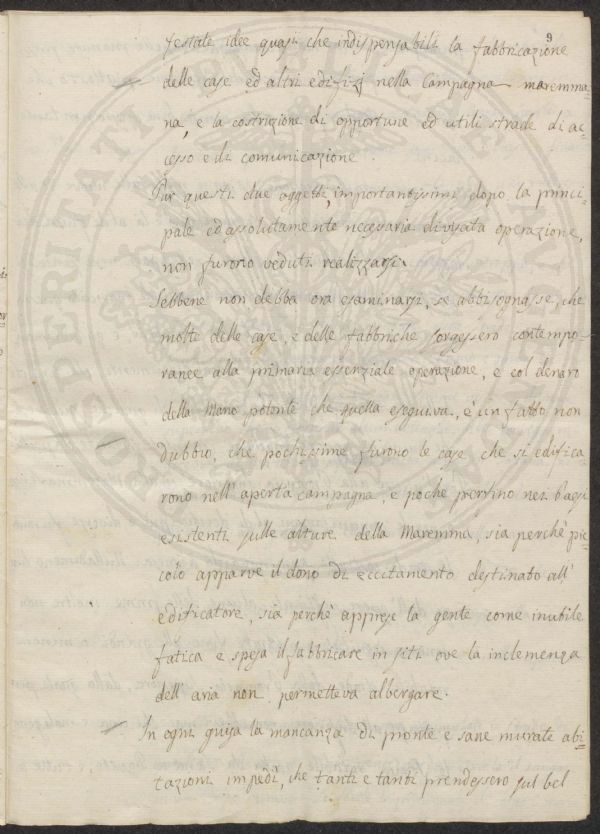 9
testate idee quasi che indispensabili la fabbricazione
delle case ed altri edifizj nella Campagna maremma=
na, e la costruzione di opportune ed utili strade di ac=
cesso e di comunicazione.
Pur questi due oggetti, importantissimi dopo la princi=
pale ed assolutamente necessaria divisata operazione,
non furono veduti realizzarsi.
Sebbene non debba ora esaminarsi, se abbisognasse, che
molte delle case, e delle fabbriche sorgessero contempo=
ranee alla primaria essenziale operazione, e col denaro
della Mano potente che quella eseguiva, è un fatto non
dubbio, che pochissime furono le case che si edifica
rono nell'aperta campagna, e poche perfino nei Paesi
esistenti sulle alture della Maremma, sia perchè pic=
colo apparve il dono di eccitamento destinato all'
edificatore, sia perchè apprese la gente come inutile
fatica e spesa il fabbricare in siti ove la inclemenza
dell'aria non permetteva albergare.
In ogni guisa la mancanza di pronte e sane murate abi=
tazioni impedì, che tanti e tanti prendessero sul bel
PROSPERITATI PUBLICAE